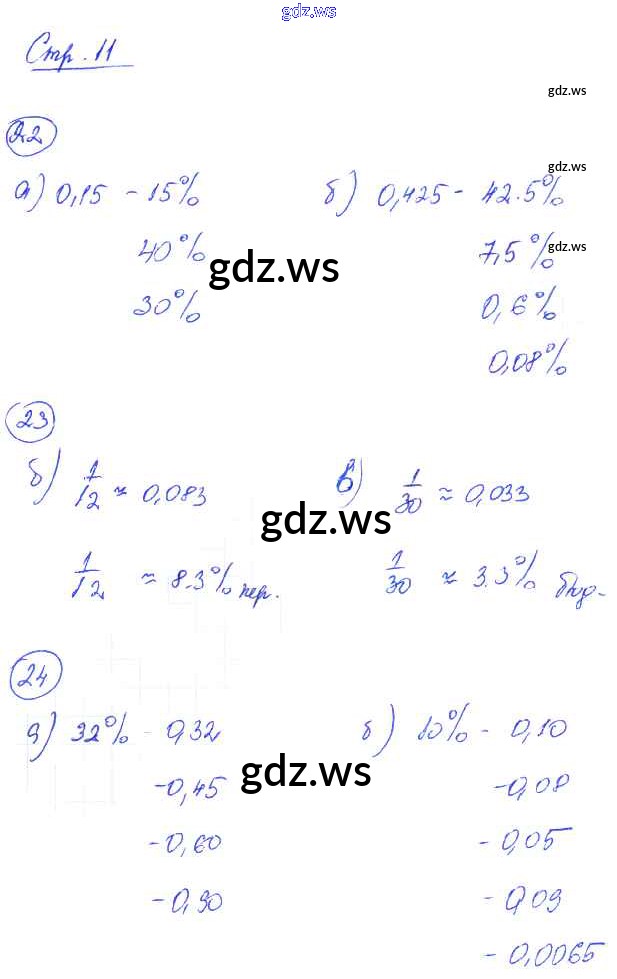 gdz.ws
Стр. 11
gdz.ws
22
gdz.ws
а) 0,15 - 15% б) 0,425 - 42.5%
40% 7,5% gdz.ws
gdz.ws
30% 0,6%
0,08%
23
б) 1/12 ≈ 0,083 в) 1/30 ≈ 0,033
gdz.ws
1/12 ≈ 8.3% пер. 1/30 ≈ 3.3%
24
а) 32% - 0,32 б) 10% - 0,10
gdz.ws
-0,45 -0,08
-0,60 -0,05
-0,90 -0,09
-0,0065